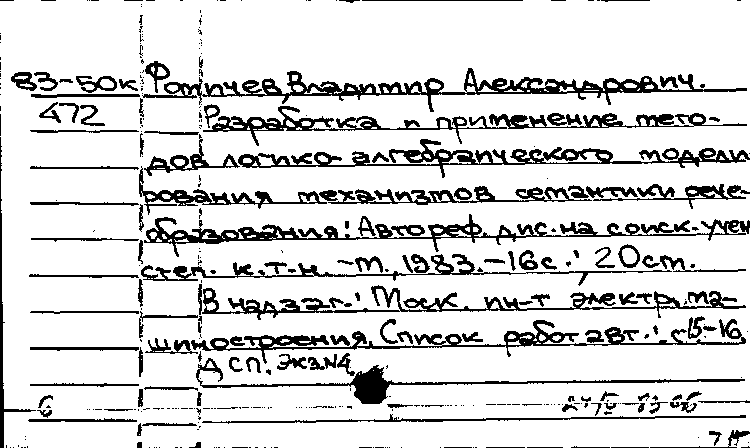 83-50к Фомичев, Владимир Александрович.
472 Разработка и применение мето-
дов логико-алгебраического модели
рования механизмов семантики рече-
образования: Автореф. дис. на соиск. учен
степ. к.т.н. - М., 1983. - 16с.; 20 см.
В надзаг.: Моск. ин-т электр. ма-
шиностроения. Список работ авт.: с 15-16.
ДСП. Экз. N4
6